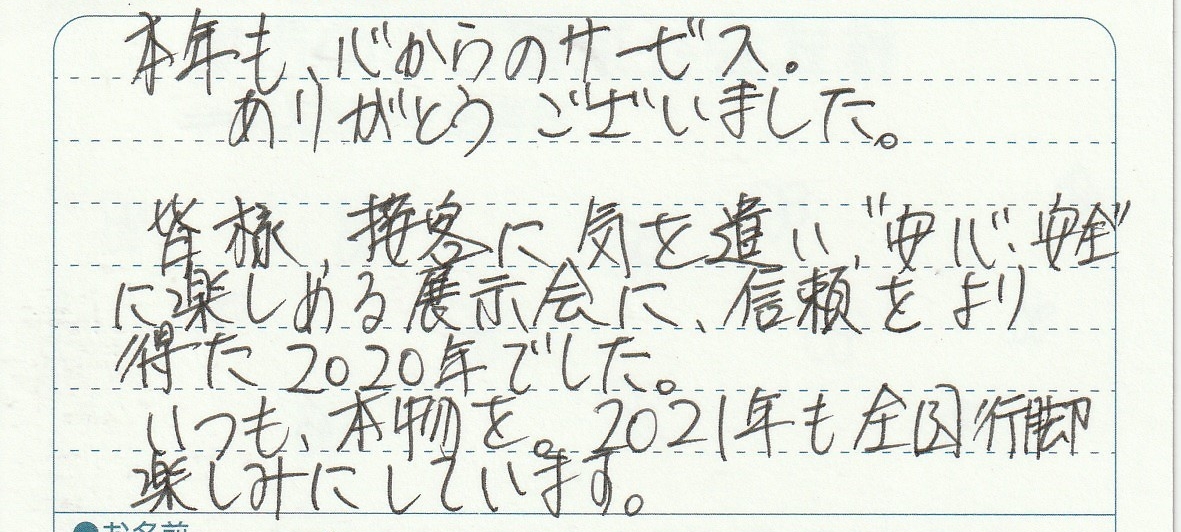 本年も、心からのサービス。
ありがとうございました。
皆様、接客に気を遣い、"安心・安全"
に楽しめる展示会に、信頼をより
得た2020年でした。
いつも、本物を。2021年も全国行脚
楽しみにしています。
●お名前